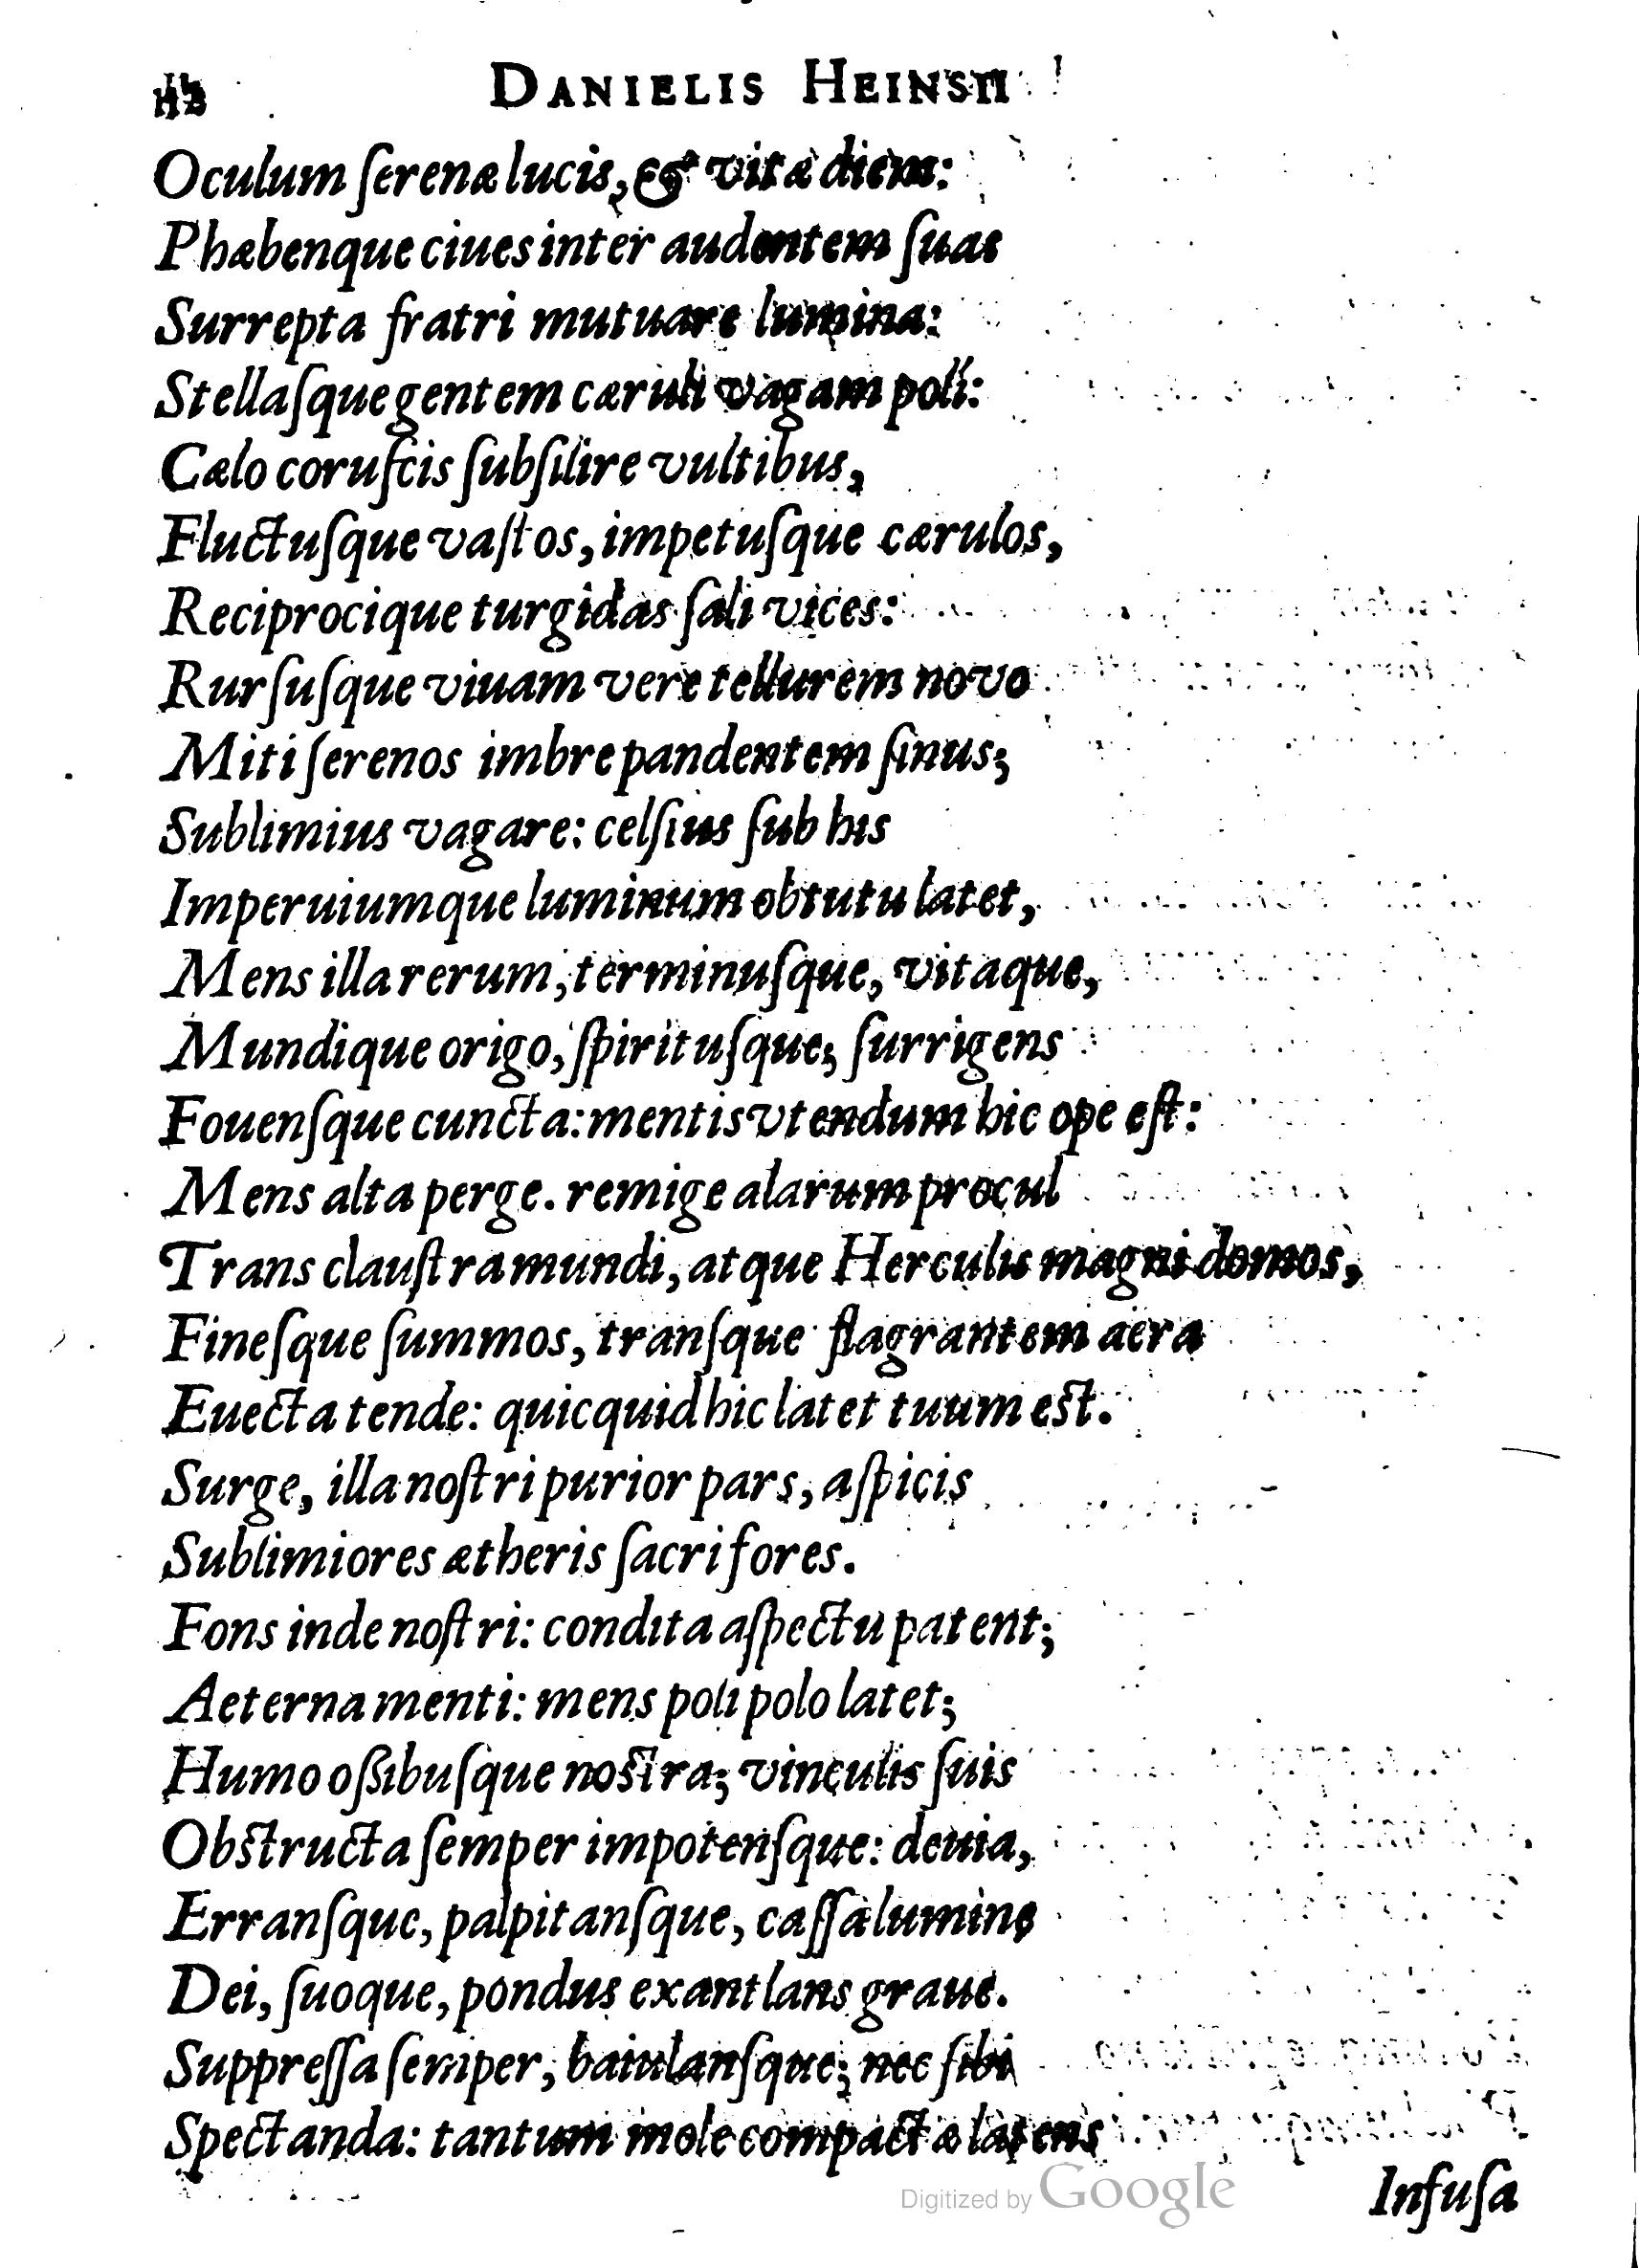 DANIELIS HEINSII
Oculum ſerenæ lucis, & vitæ diem:
Phæbenque ciues inter audentem ſuas
Surrepta fratri mutuare lumina:
Stellaſque gentem cæruli vagam poli:
Cælo coruſcis ſubſilire vultibus,
Fluctuſque vaſtos, impetuſque cærulos,
Reciprocique turgidas ſali vices:
Rurſuſque viuam vere tellurem novo
Miti ſerenos imbre pandentem ſinus;
Sublimius vagare: celſius ſub his
Imperuiumque luminum obtutu latet,
Mens illa rerum, terminuſque, vitaque,
Mundique origo, ſpirituſque; ſurrigens
Fouenſque cuncta: mentis vtendum hic ope eſt:
Mens alta perge. remige alarum procul
Trans clauſtra mundi, atque Herculis magni domos,
Fineſque ſummos, tranſque flagrantem aera
Euecta tende: quicquid hic latet tuum est.
Surge, illa noſtri purior pars, aſpicis
Sublimiores ætheris ſacri fores.
Fons inde noſtri: condita aſpectu patent;
Aeterna menti: mens poli polo latet;
Humo oſsibuſque nostra; vinculis ſuis
Obstructa ſemper impotenſque: deuia,
Erranſque, palpitanſque, caſſa lumine
Dei, ſuoque, pondus exantlans graue.
Suppreſſa ſemper, baiulanſque; nec ſibi
Spectanda: tantum mole compactæ latens
Infuſa
Digitized by Google